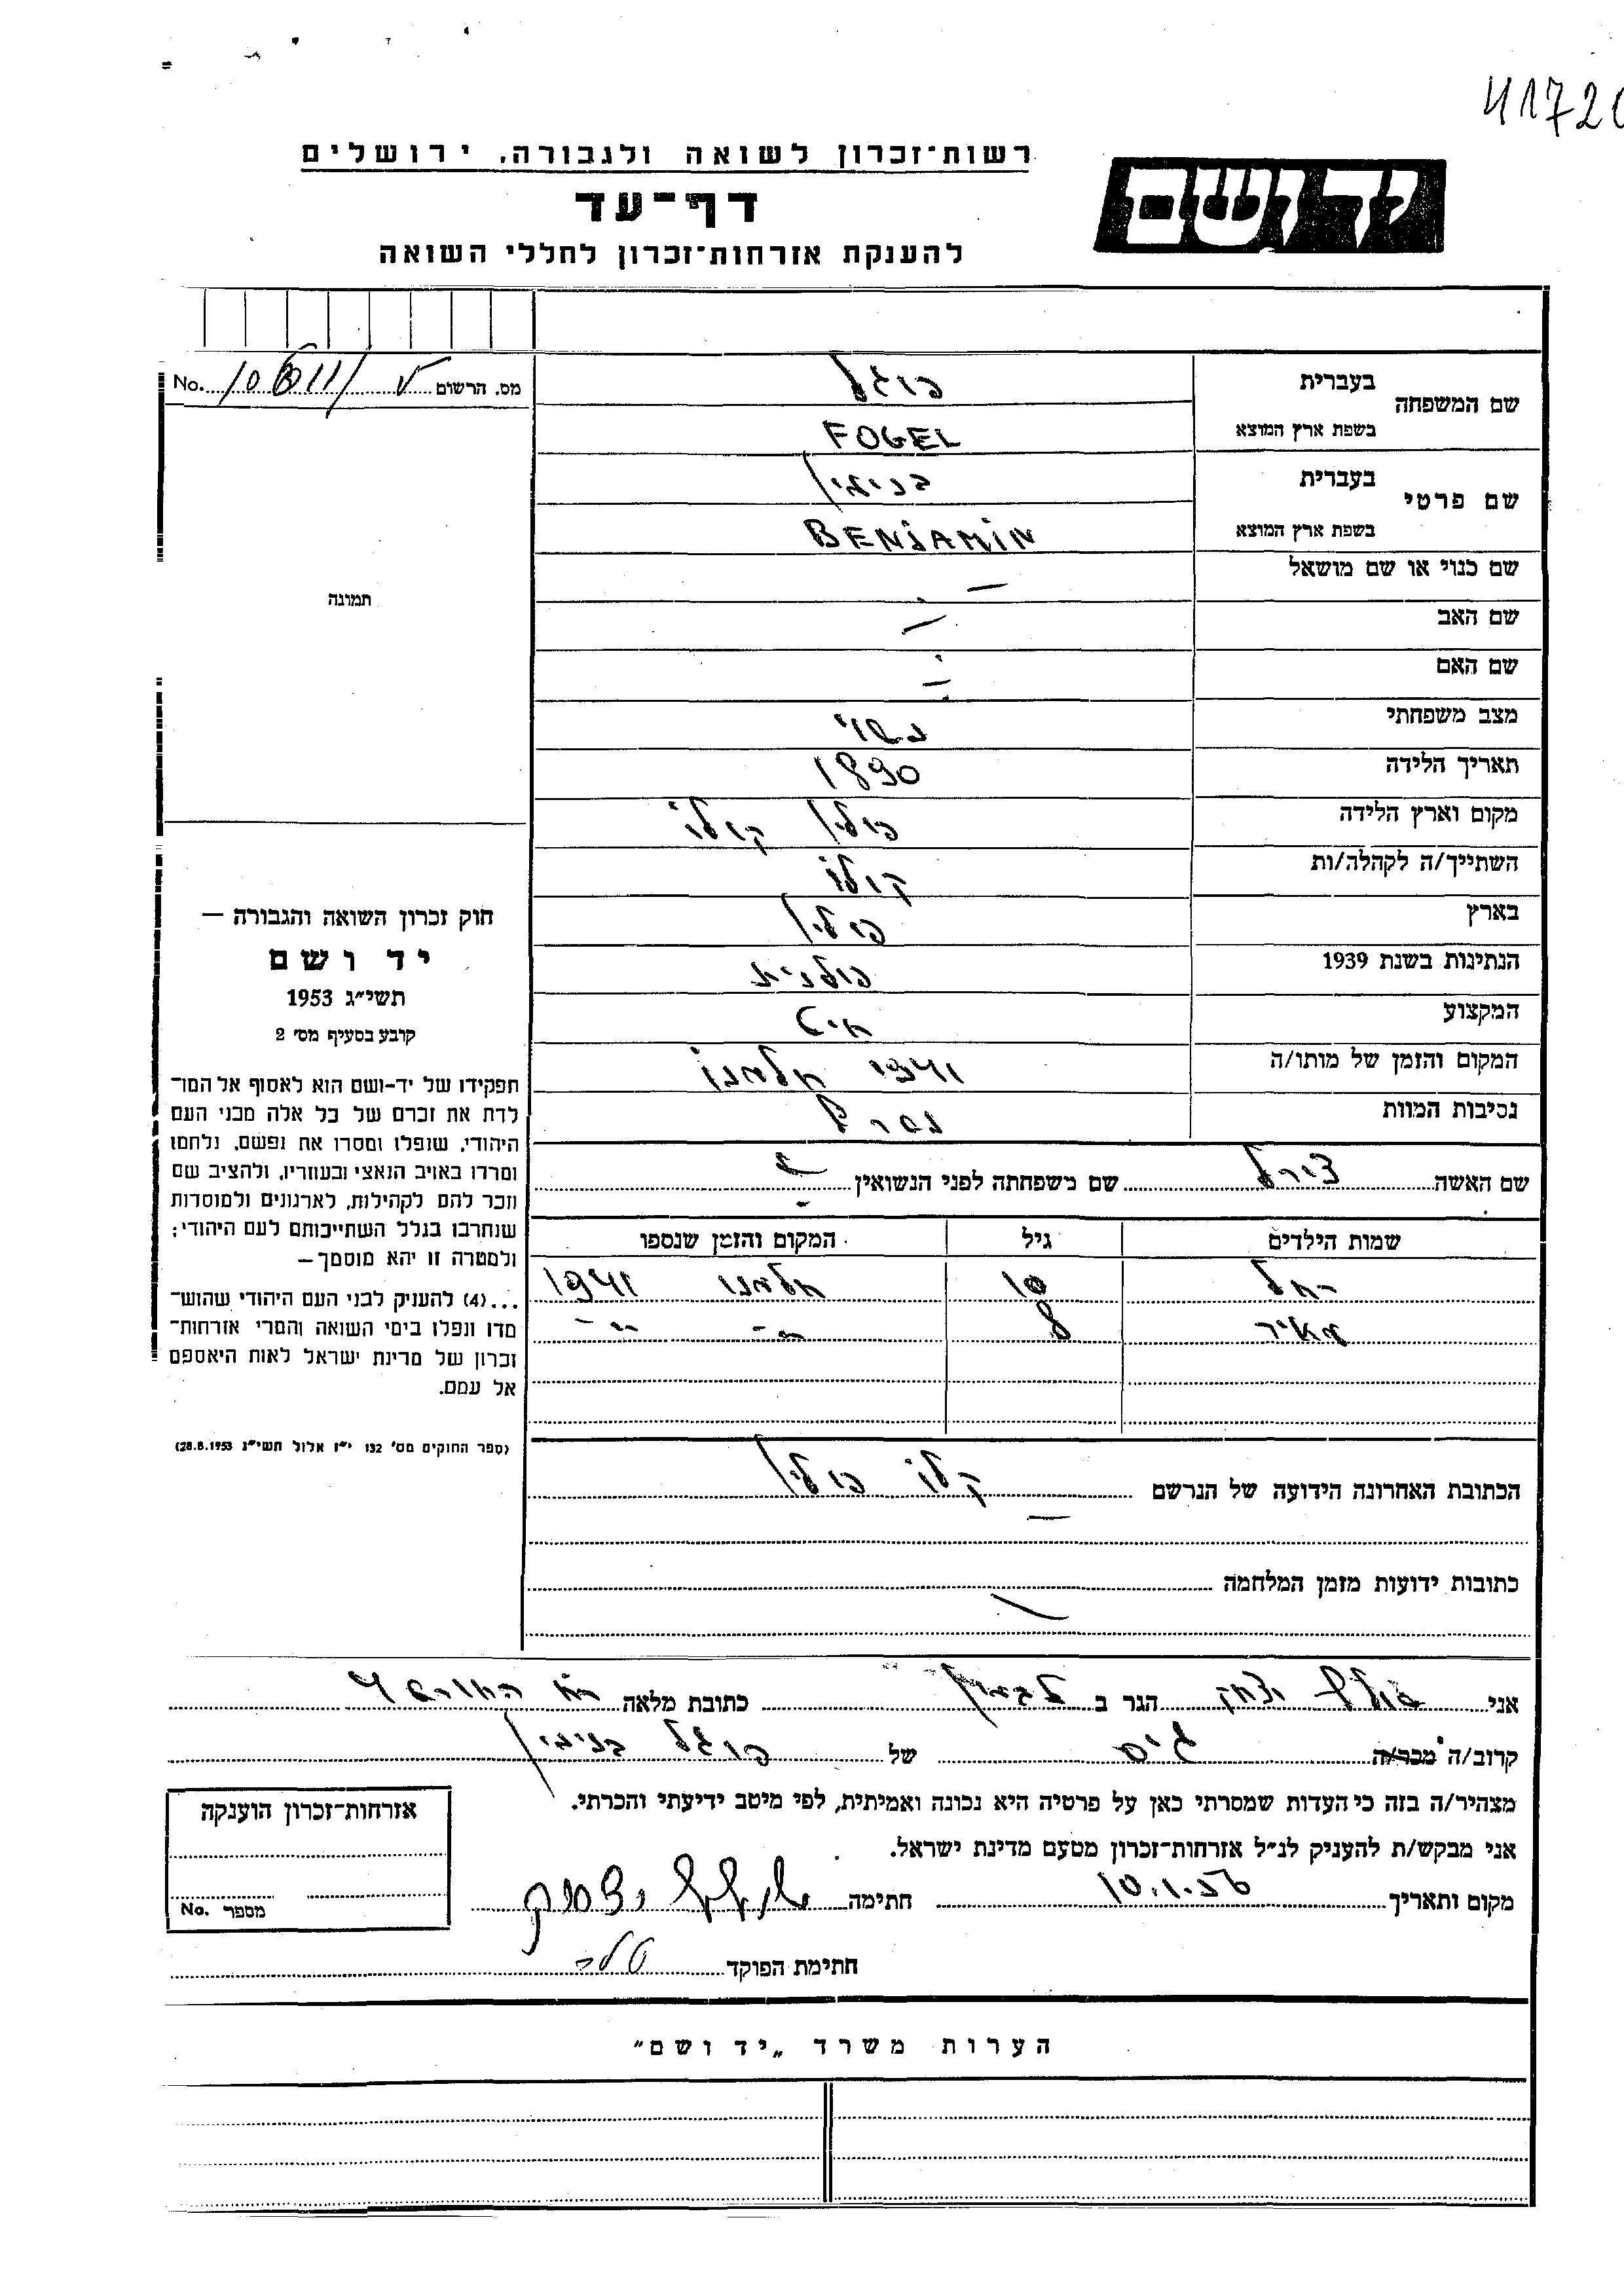 4172
רשות־זכרון לשואה ולגבורה, ירושלים
יד ושם
דף־עד
להענקת אזרחות־זכרון לחללי השואה
מס. הרשום No.
שם המשפחה בעברית פוגל
בשפת ארץ המוצא FOGEL
שם פרטי בעברית בנימין
בשפת ארץ המוצא BENJAMIN
שם כנוי או שם מושאל —
שם האב —
שם האם —
מצב משפחתי נשוי
תאריך הלידה 1890
מקום וארץ הלידה פולין קולו
השתייך/ה לקהלה/ות קולו
בארץ פולין
הנתינות בשנת 1939 פולנית
המקצוע חיט
המקום והזמן של מותו/ה 1941 חלמנו
נסיבות המוות נשרף
שם האשה צירל שם משפחתה לפני הנשואין
שמות הילדים גיל המקום והזמן שנספו
רחל 10 חלמנו 1941
מאיר 8 -״- -״-
הכתובת האחרונה הידועה של הנרשם קלו פולין
—
כתובות ידועות מזמן המלחמה
תמונה
חוק זכרון השואה והגבורה —
יד ושם
תשי״ג 1953
קובע בסעיף מס׳ 2
תפקידו של יד-ושם הוא לאסוף אל המו־
לדת את זכרם של כל אלה מבני העם
היהודי, שנפלו ומסרו את נפשם, נלחמו
ומרדו באויב הנאצי ובעוזריו, ולהציב שם
וזכר להם לקהילות, לארגונים ולמוסדות
שנחרבו בגלל השתייכותם לעם היהודי;
ולמטרה זו יהא מוסמך —
...(4) להעניק לבני העם היהודי שהוש־
מדו ונפלו בימי השואה והמרי אזרחות־
זכרון של מדינת ישראל לאות היאספם
אל עמם.
(ספר החוקים מס׳ 132 י״ז אלול תשי״ג 28.8.1953)
אני יצחק הגר ב כתובת מלאה
קרוב/ה מכר/ה גיס של פוגל בנימין
מצהיר/ה בזה כי העדות שמסרתי כאן על פרטיה היא נכונה ואמיתית, לפי מיטב ידיעתי והכרתי.
אני מבקש/ת להעניק לנ״ל אזרחות־זכרון מטעם מדינת ישראל.
מקום ותאריך 10.1.56 חתימה יצחק
חתימת הפוקד
אזרחות־זכרון הוענקה
מספר No.
הערות משרד „יד ושם״